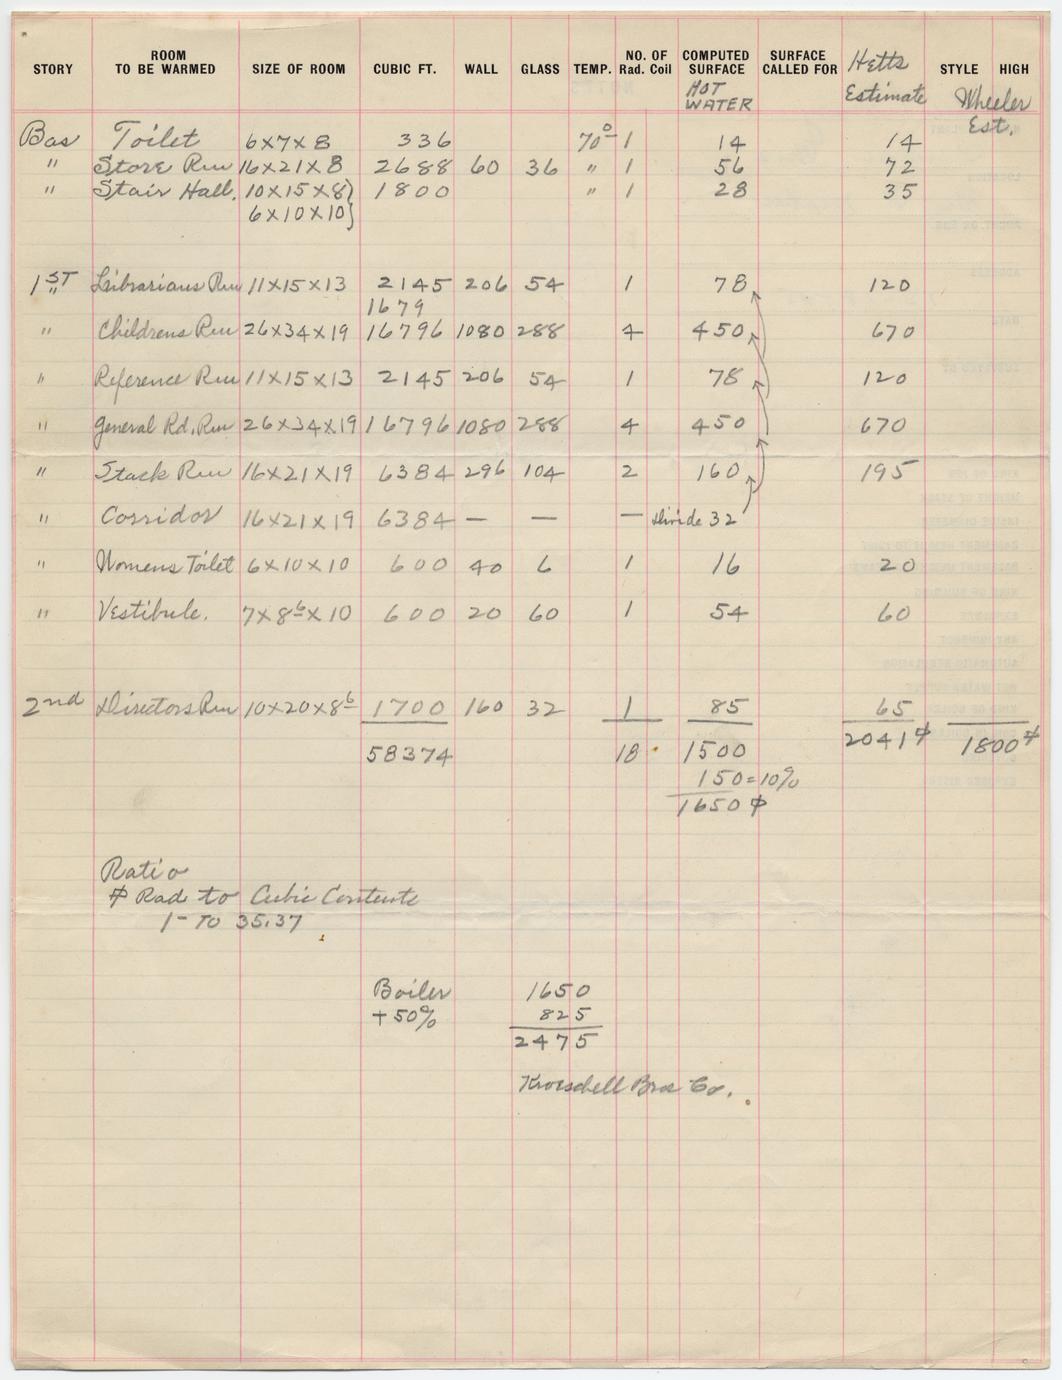 STORY ROOM TO BE WARMED SIZE OF ROOM CUBIC FT. WALL GLASS TEMP. NO. OF Rad. Coil COMPUTED SURFACE SURFACE CALLED FOR Hetts Estimate STYLE HIGH
HOT WATER Wheeler Est.
Bas Toilet 6x7x8 336 70° 1 14 14
" Store Rm 16x21x8 2688 60 36 " 1 56 72
" Stair Hall. 10x15x8) 1800 " 1 28 35
6x10x10}
1ST Librarians Rm 11x15x13 2145 206 54 1 78 120
1679
" Childrens Rm 26x34x19 16796 1080 288 4 450 670
" Reference Rm 11x15x13 2145 206 54 1 78 120
" General Rd. Rm 26x34x19 16796 1080 288 4 450 670
" Stack Rm 16x21x19 6384 296 104 2 160 195
" Corridor 16x21x19 6384 — — — Divide 32
" Womens Toilet 6x10x10 600 40 6 1 16 20
" Vestibule. 7x8⁶x10 600 20 60 1 54 60
2nd Directors Rm 10x20x8⁶ 1700 160 32 1 85 65
58374 18 1500 2041⌗ 1800⌗
150=10%
1650⌗
Ratio
⌗ Rad to Cubic Contents
1- TO 35.37
Boiler 1650
+50% 825
2475
Kroeschell Bros Co.